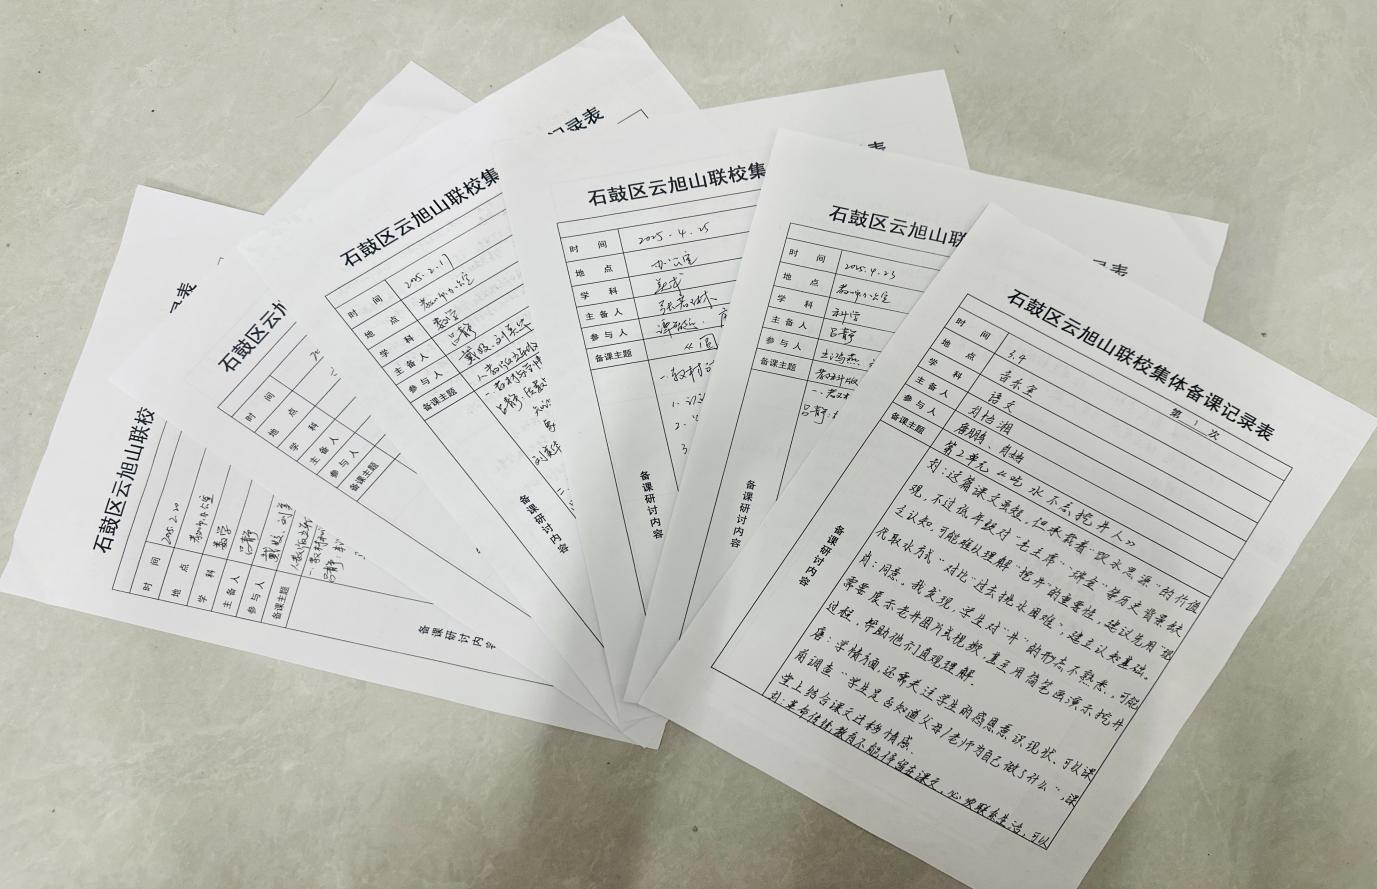 石鼓区云旭山联校集体备课记录表
第 1 次
时 间
3.4
地 点
音乐室
学 科
语文
主备人
刘怡湘
参与人
唐鹏 肖婧
备课主题
第2单元《吃水不忘挖井人》
备课研讨内容
刘:这篇课文虽短,但承载着"饮水思源"的价值
观,不过低年级对"毛主席""瑞金"等历史背景缺
乏认知,可能难以理解"挖井"的重要性,建议先用"现
代取水方式"对比"过去挑水困难",建立认知基础。
肖:同意。我发现,学生对"井"的形态不熟悉,可能
需要展示老井图片或视频,甚至用简笔画演示挖井
过程,帮助他们直观理解。
唐:学情方面,还需关注学生的感恩意识现状,可以课
前调查"学生是否知道父母/老师为自己做了什么",课
堂上结合课文迁移情感。
刘:革命传统教育不能停留在课文,必须联系生活,可以
石鼓区云旭山联
时 间
2025.4.23
地 点
教师办公室
学 科
科学
主备人
吕静
参与人
备课主题
教科版
备课研讨内容
吕静:
石鼓区云旭山联校集
时 间
2025.4.25
地 点
办公室
学 科
主备人
参与人
备课主题
一、教材
1.
2.
3.
备课研讨内容
石鼓区云旭山联校集
记录表
时 间
2025.2.17
地 点
教师办公室
学 科
数学
主备人
吕静
参与人
戴姣、刘美华
备课主题
人教版五年级
吕静:
刘美华
备课研讨内容
石鼓区云旭
时 间
地 点
学 科
主备人
参与人
备课主题
石鼓区云旭山联校
录表
时 间
2025.2.20
地 点
教师办公室
学 科
数学
主备人
吕静
参与人
戴姣、刘美
备课主题
人教版五年
一、教材
吕静:
备课研讨内容